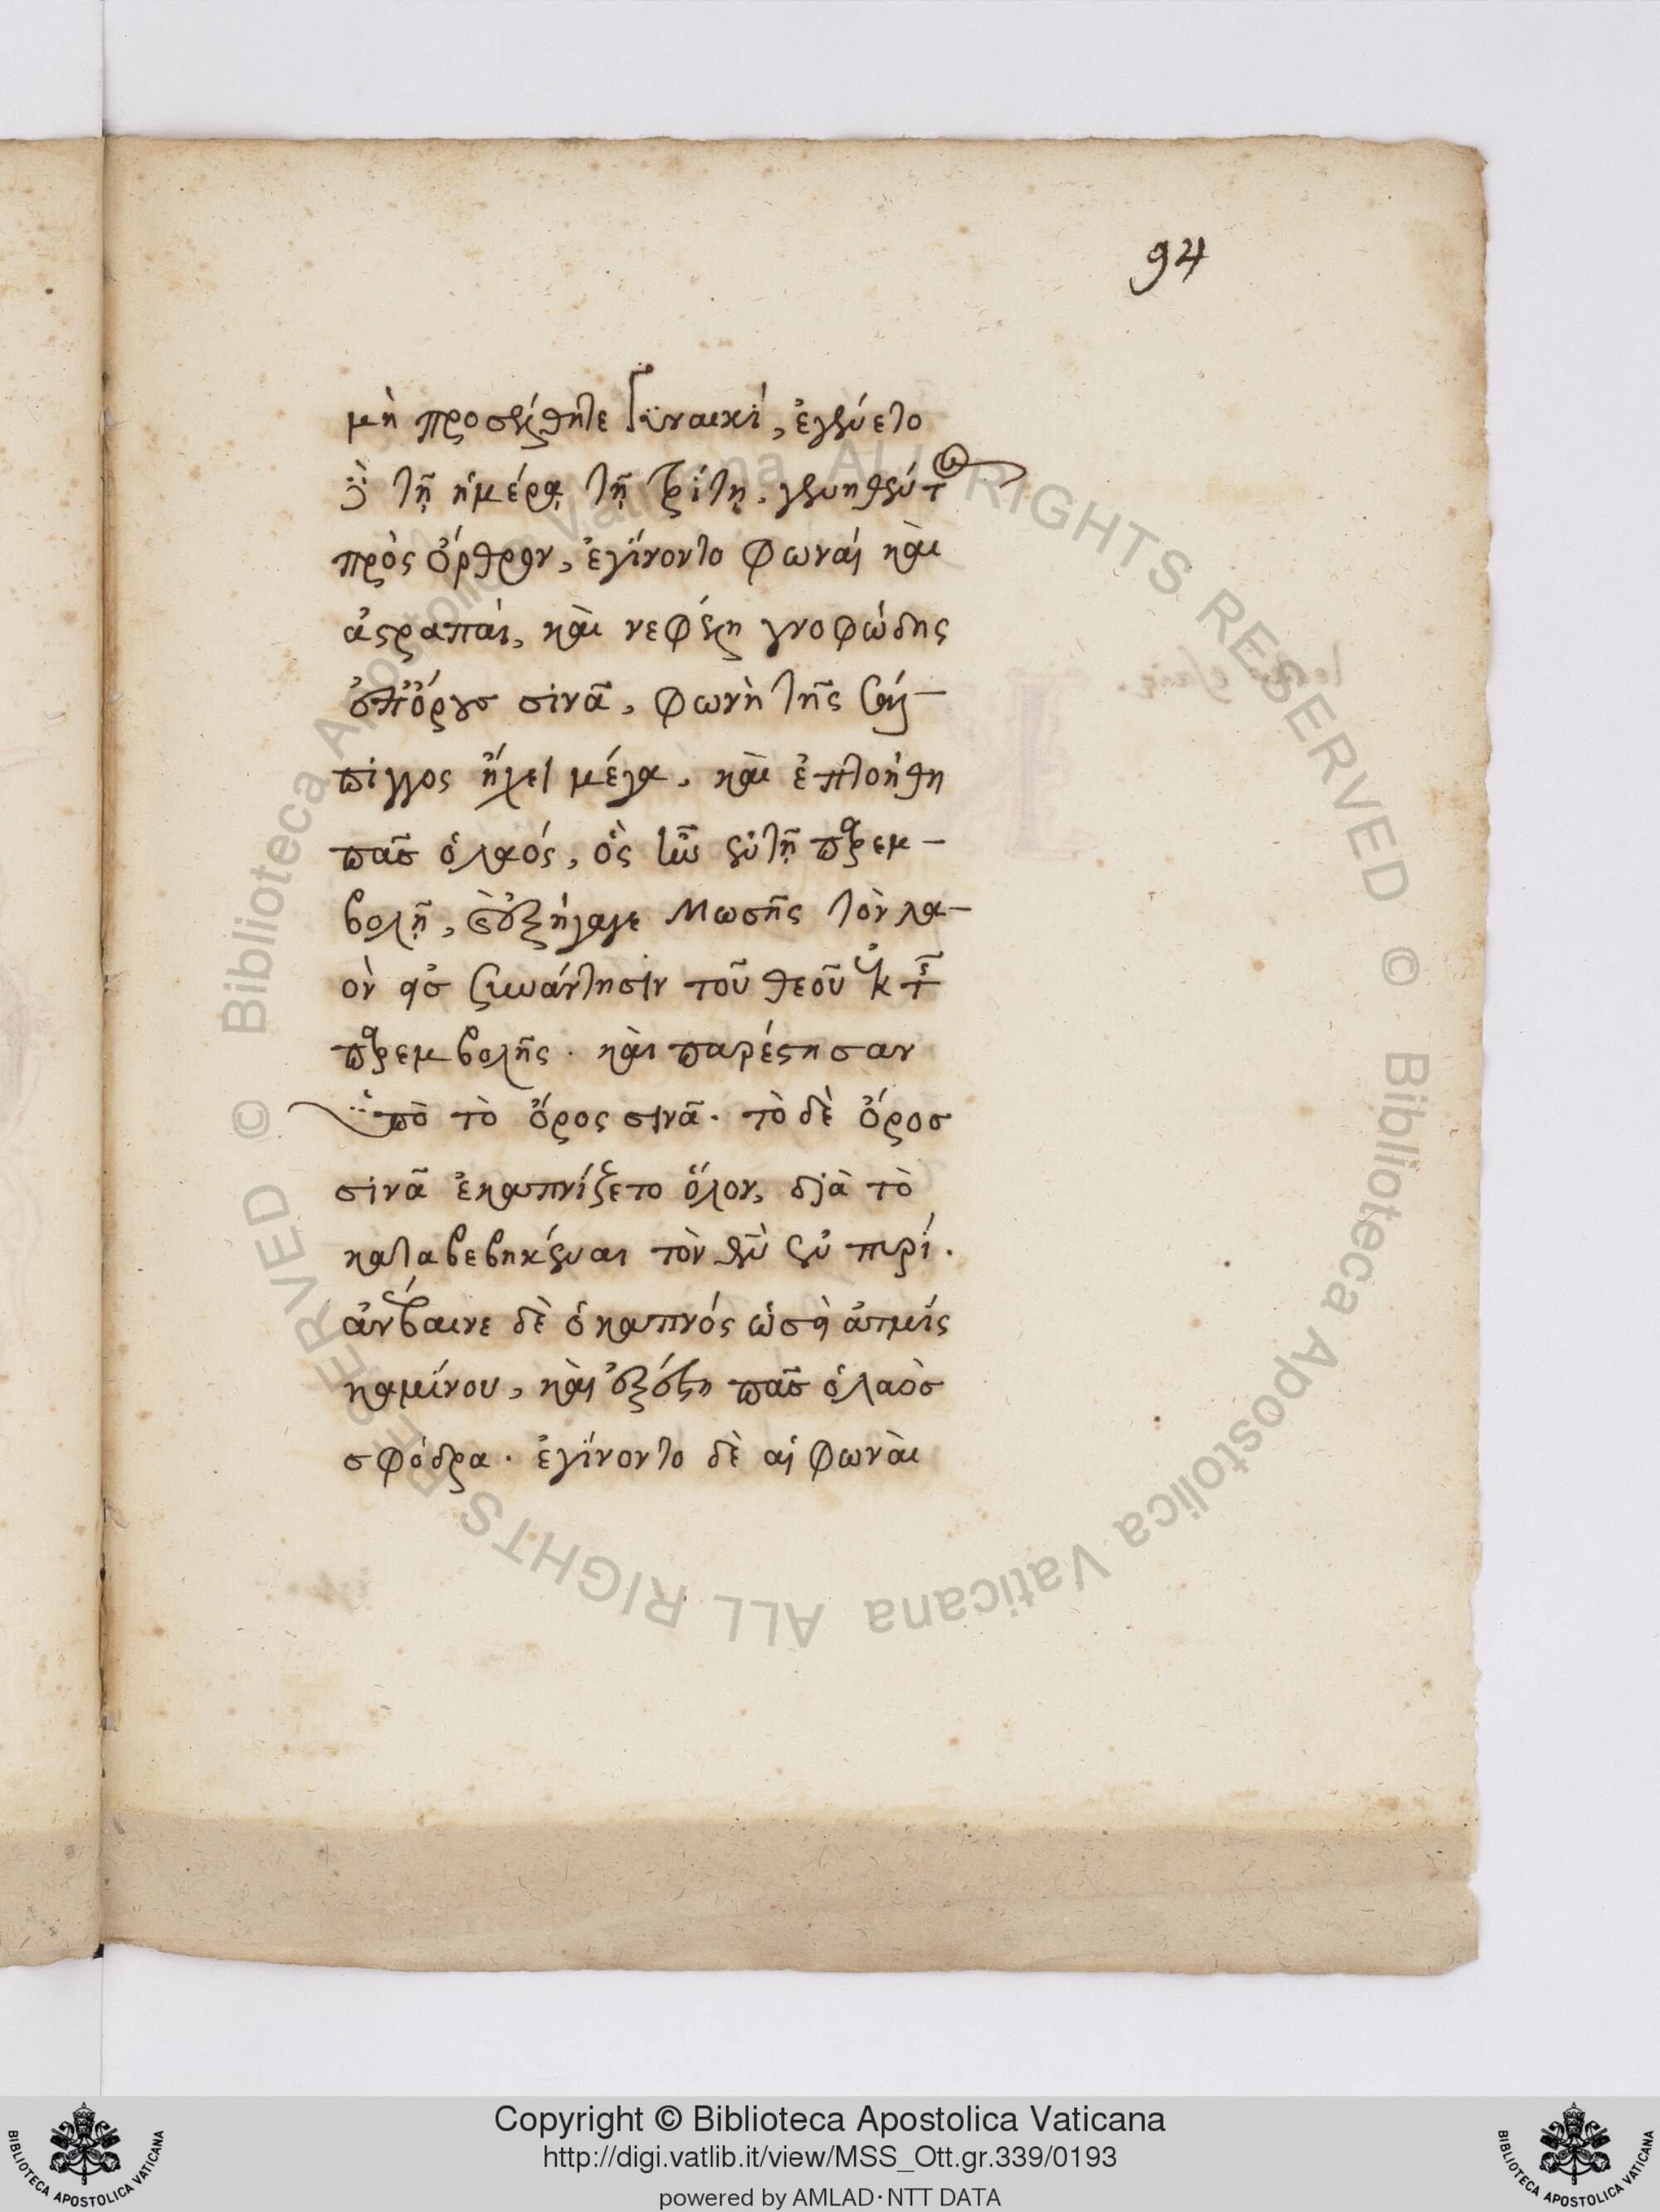 94
μὴ προσέλθητε γϋναικὶ, ἐγένετο
δὲ τῇ ἡμέρᾳ τῇ τρίτῃ. γενηθέντων
πρὸς ὄρθρον, ἐγίνοντο φωναὶ καὶ
ἀστραπαὶ, καὶ νεφέλη γνοφώδης
ἐπ' ὄρους σινᾶ, φωνὴ τῆς σάλ-
πιγγος ἤχει μέγα, καὶ ἐπτοήθη
πᾶσ ὁ λαός, ὃς ἦν ἐν τῇ παρεμ-
βολῇ, καὶ ἐξήγαγε Μωσῆς τὸν λα-
ὸν εἰσ συνάντησιν τοῦ θεοῦ ἐκ τῆς
παρεμβολῆς. καὶ παρέστησαν
ὑπὸ τὸ ὄρος σινᾶ. τὸ δὲ ὄροσ
σινᾶ ἐκαπνίζετο ὅλον, διὰ τὸ
καταβεβηκέναι τὸν θν ἐν πυρί.
ἀνέβαινε δὲ ὁ καπνός ὡσεὶ ἀτμίς
καμίνου, καὶ ἐξέστη πᾶσ ὁ λαὸσ
σφόδρα. ἐγίνοντο δὲ αἱ φωναὶ
Biblioteca Apostolica Vaticana ALL RIGHTS RESERVED ©
Biblioteca Apostolica Vaticana ALL RIGHTS RESERVED ©
Copyright © Biblioteca Apostolica Vaticana
http://digi.vatlib.it/view/MSS_Ott.gr.339/0193
powered by AMLAD·NTT DATA
BIBLIOTECA APOSTOLICA VATICANA
BIBLIOTECA APOSTOLICA VATICANA